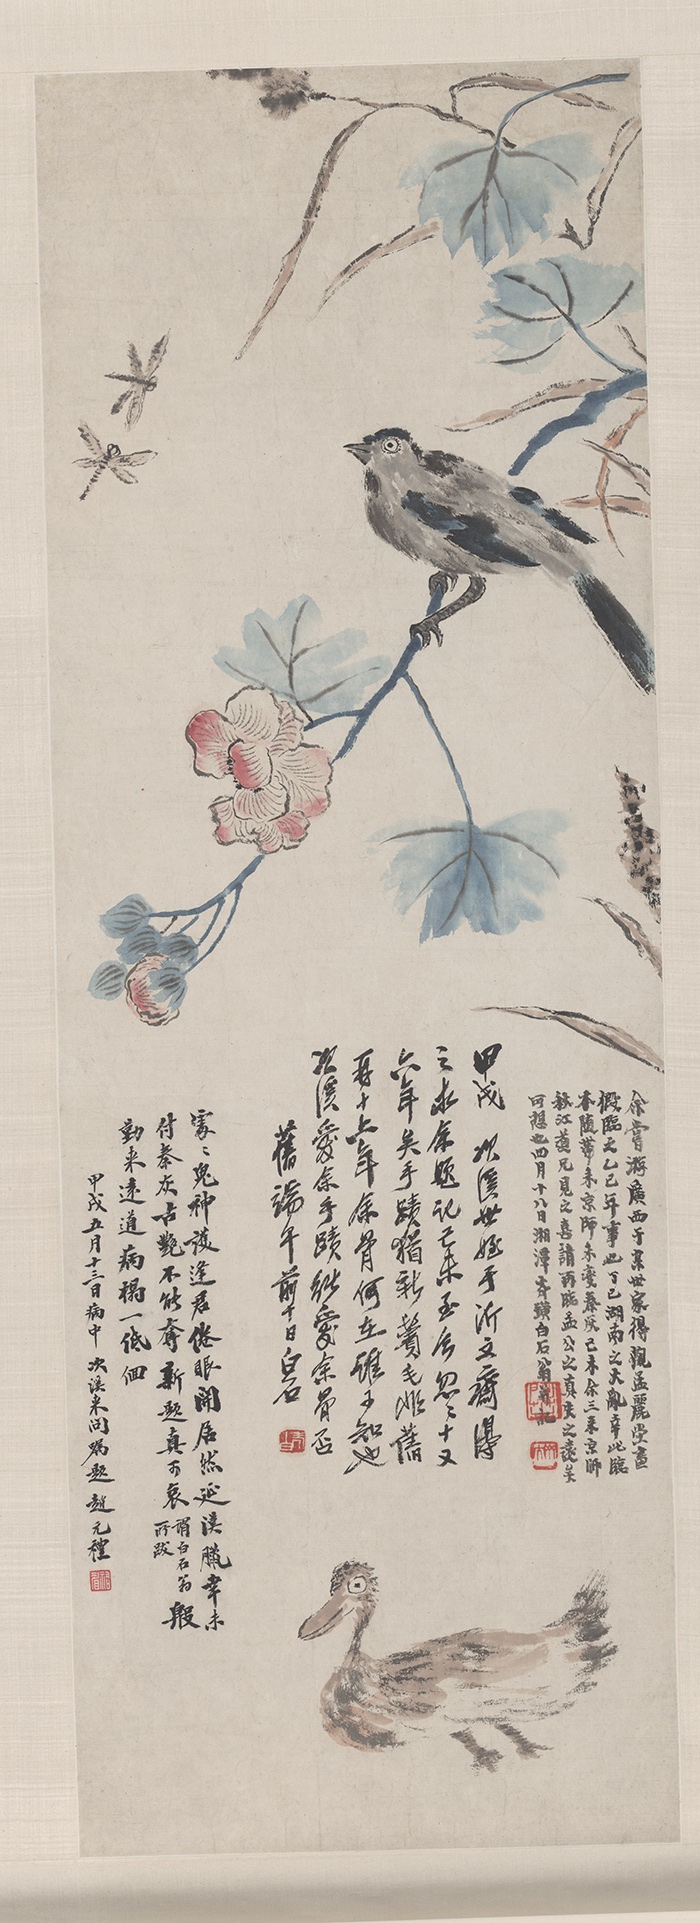 余嘗游廣西于某世家得觀孟麗堂畫
假臨之乙巳年事也丁巳湖南之大亂幸此臨
本隨帶來京師未變秦灰己未余三來京師
秋江黃兄見之喜請再臨孟公之真
可想也四月十八日湘潭齊璜白石翁并記
甲戌 次溪世姪于沂文齋得
之求余題記己未至今忽忽十又
六年矣手蹟猶新鬢毛非舊
再十六年余骨何在雖子知也
次溪愛余手蹟能愛余骨否
舊端午前十日白石
冢冢鬼神護逢君倦眼開居然延漢臘幸未
付秦灰古艷不能奪新題真可哀 謂白石翁所跋 殷
勤來遠道病榻一低徊
甲戌五月十三日病中 次溪來問隨題 趙元禮